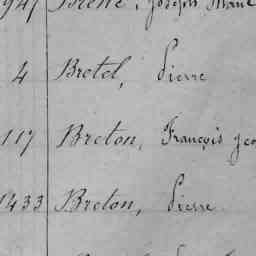 Joseph Marie
4 Bretel, Pierre
117 Breton, François
1433 Breton, Pierre